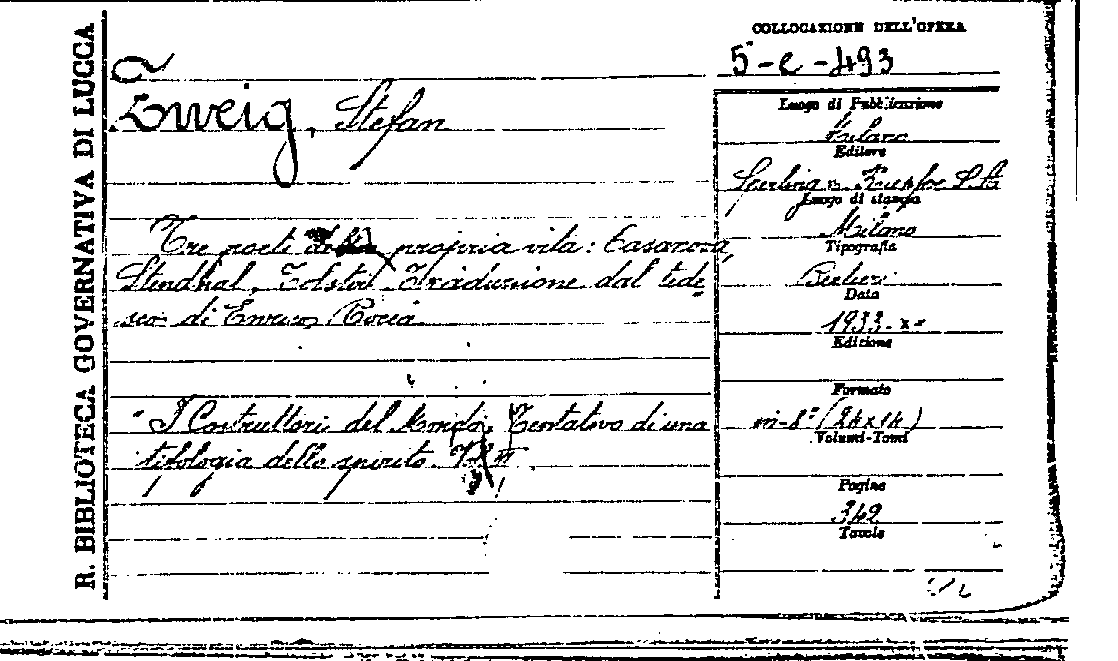 R. BIBLIOTECA GOVERNATIVA DI LUCCA
Zweig, Stefan
Tre poeti della propria vita: Casanova,
Stendhal, Tolstoi. Traduzione dal tede-
sco di Enrico Rocca
"I Costruttori del Mondo. Tentativo di una
tipologia dello spirito. Vol. III
COLLOCAZIONE DELL'OPERA
5-e-493
Luogo di Pubblicazione
Milano
Editore
Sperling e Kupfer S.A.
Luogo di stampa
Milano
Tipografia
Data
1933-XX
Edizione
Formato
in-8° (24x14)
Volumi-Tomi
Pagine
349
Tavole